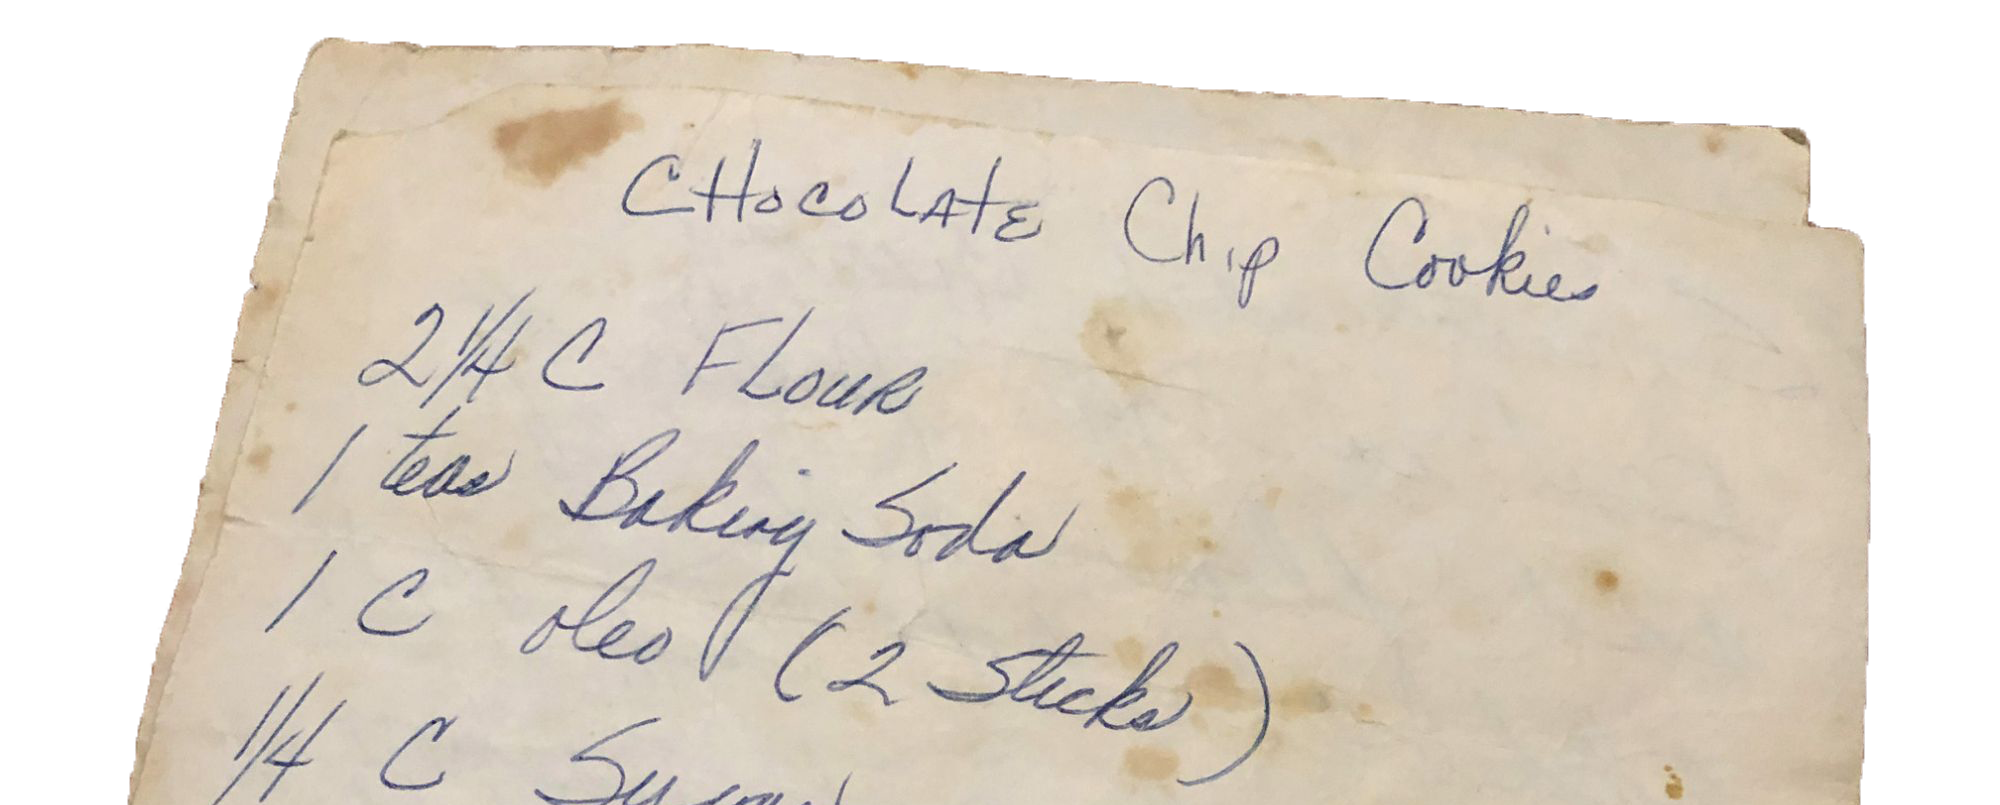 CHOCOLATE Chip Cookies
2 1/4 C FLOUR
1 teas Baking Soda
1 C oleo (2 Sticks)
1/4 C